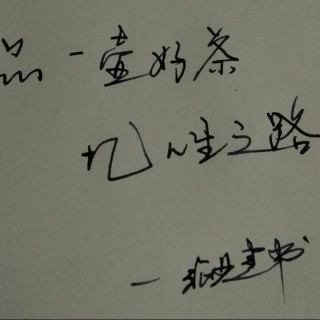 品一壶好茶
忆人生之路